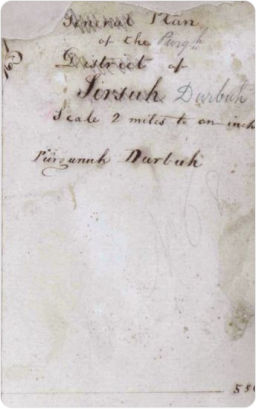 General Plan
of the Purgh
District of
Sirsuh Durbuh
Scale 2 miles to an inch
Pürgunnuh Durbuh